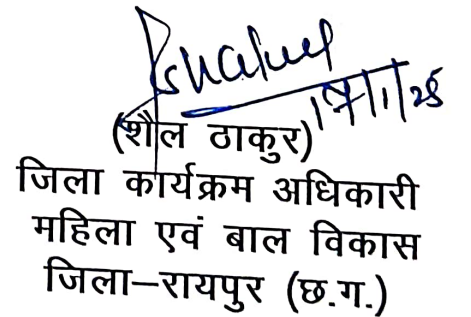 17/1/25
(शैल ठाकुर)
जिला कार्यक्रम अधिकारी
महिला एवं बाल विकास
जिला–रायपुर (छ.ग.)